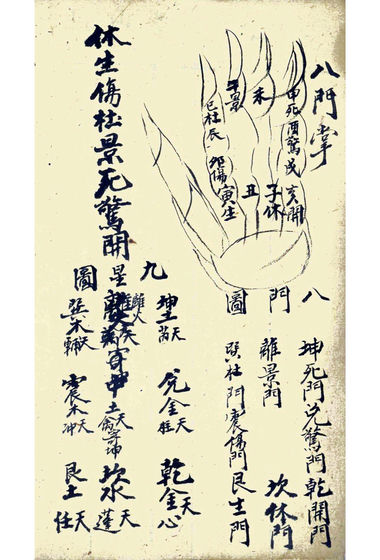 八門掌
申死酉驚戌亥開
未
午景
巳杜辰
卯傷
寅生
丑
子休
休生傷杜景死驚開
八門圖
坤死門兌驚門乾開門
離景門
坎休門
巽杜門震傷門艮生門
九星圖
坤土天芮
兌金天柱
乾金天心
離火
寄中土天禽寄坤
坎水天蓬
巽木天輔
震木天冲
艮土天任